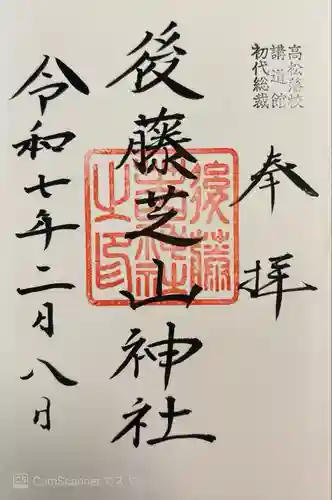 高松藩校
講道館
初代総裁
奉拝
後藤芝山神社
令和七年二月八日
CS CamScanner でスキャン